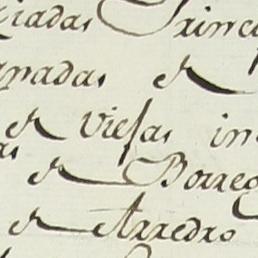 ciadas Princi
anadas de
de Viejas in
de Borreg
de Arredro